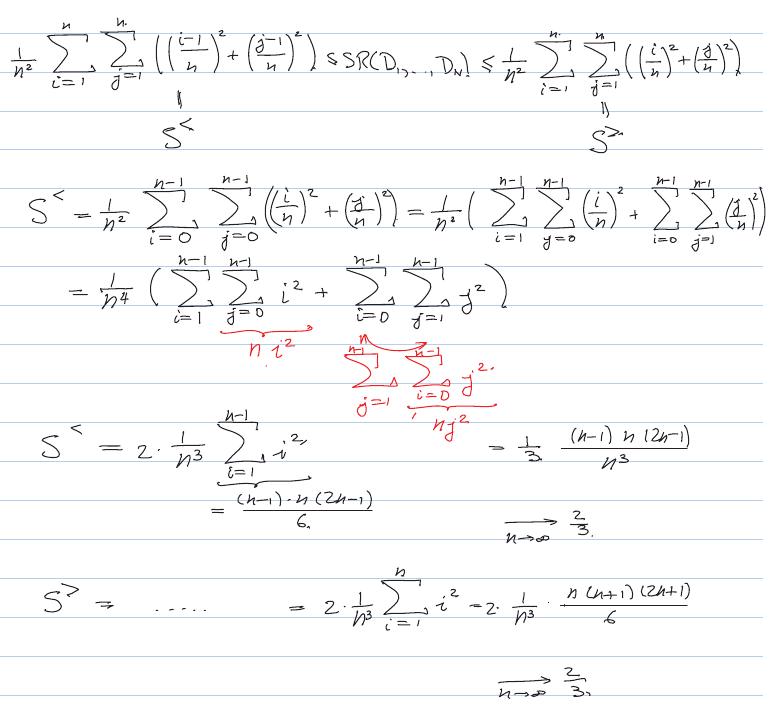 1/n² Σ_{i=1}^{n} Σ_{j=1}^{n} (((i-1)/n)² + ((j-1)/n)²) ≤ SR(D₁,...,D_N) ≤ 1/n² Σ_{i=1}^{n} Σ_{j=1}^{n} ((i/n)² + (j/n)²)
|| ||
S^< S^>
S^< = 1/n² Σ_{i=0}^{n-1} Σ_{j=0}^{n-1} ((i/n)² + (j/n)²) = 1/n² ( Σ_{i=1}^{n-1} Σ_{j=0}^{n-1} (i/n)² + Σ_{i=0}^{n-1} Σ_{j=1}^{n-1} (j/n)² )
= 1/n⁴ ( Σ_{i=1}^{n-1} Σ_{j=0}^{n-1} i² + Σ_{i=0}^{n-1} Σ_{j=1}^{n-1} j² )
n i²
Σ_{j=1}^{n-1} Σ_{i=0}^{n-1} j²
n j²
S^< = 2 · 1/n³ Σ_{i=1}^{n-1} i² = 1/3 (n-1) n (2n-1)/n³
= (n-1)·n(2n-1)/6
→_{n→∞} 2/3
S^> = ..... = 2 · 1/n³ Σ_{i=1}^{n} i² = 2 · 1/n³ · n(n+1)(2n+1)/6
→_{n→∞} 2/3